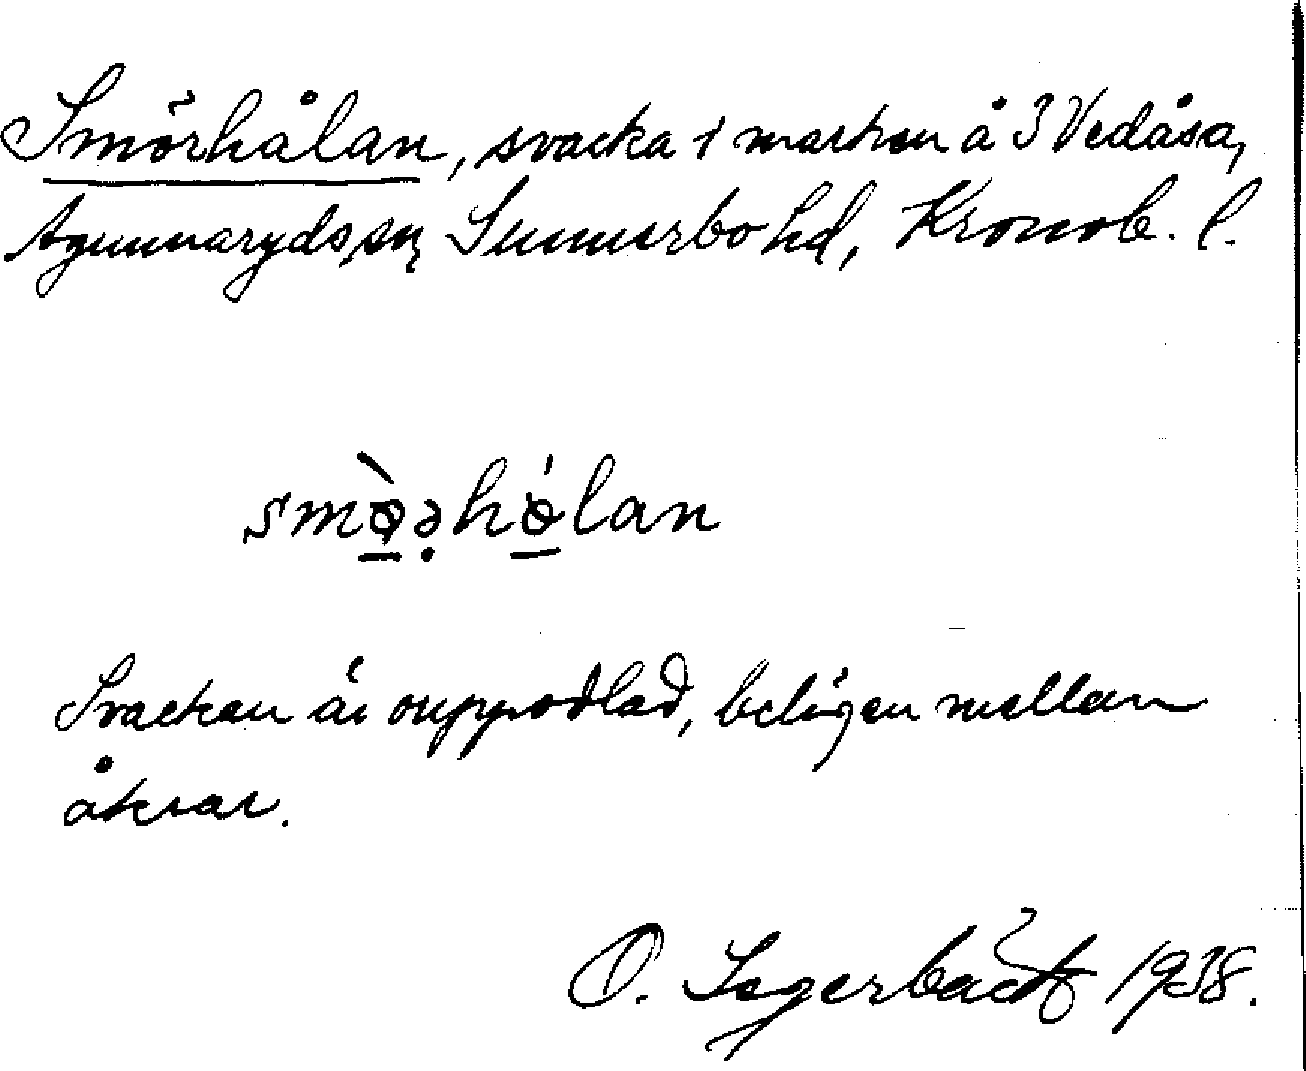 Smörhålan, svacka i marken å 3 Vedåsa,
Agunnaryds sn, Sunnerbo hd, Kronob. l.
smö̀ə̣hǿlan
Svackan är ouppodlad, belägen mellan
åkrar.
O. Segerbäck 1938.